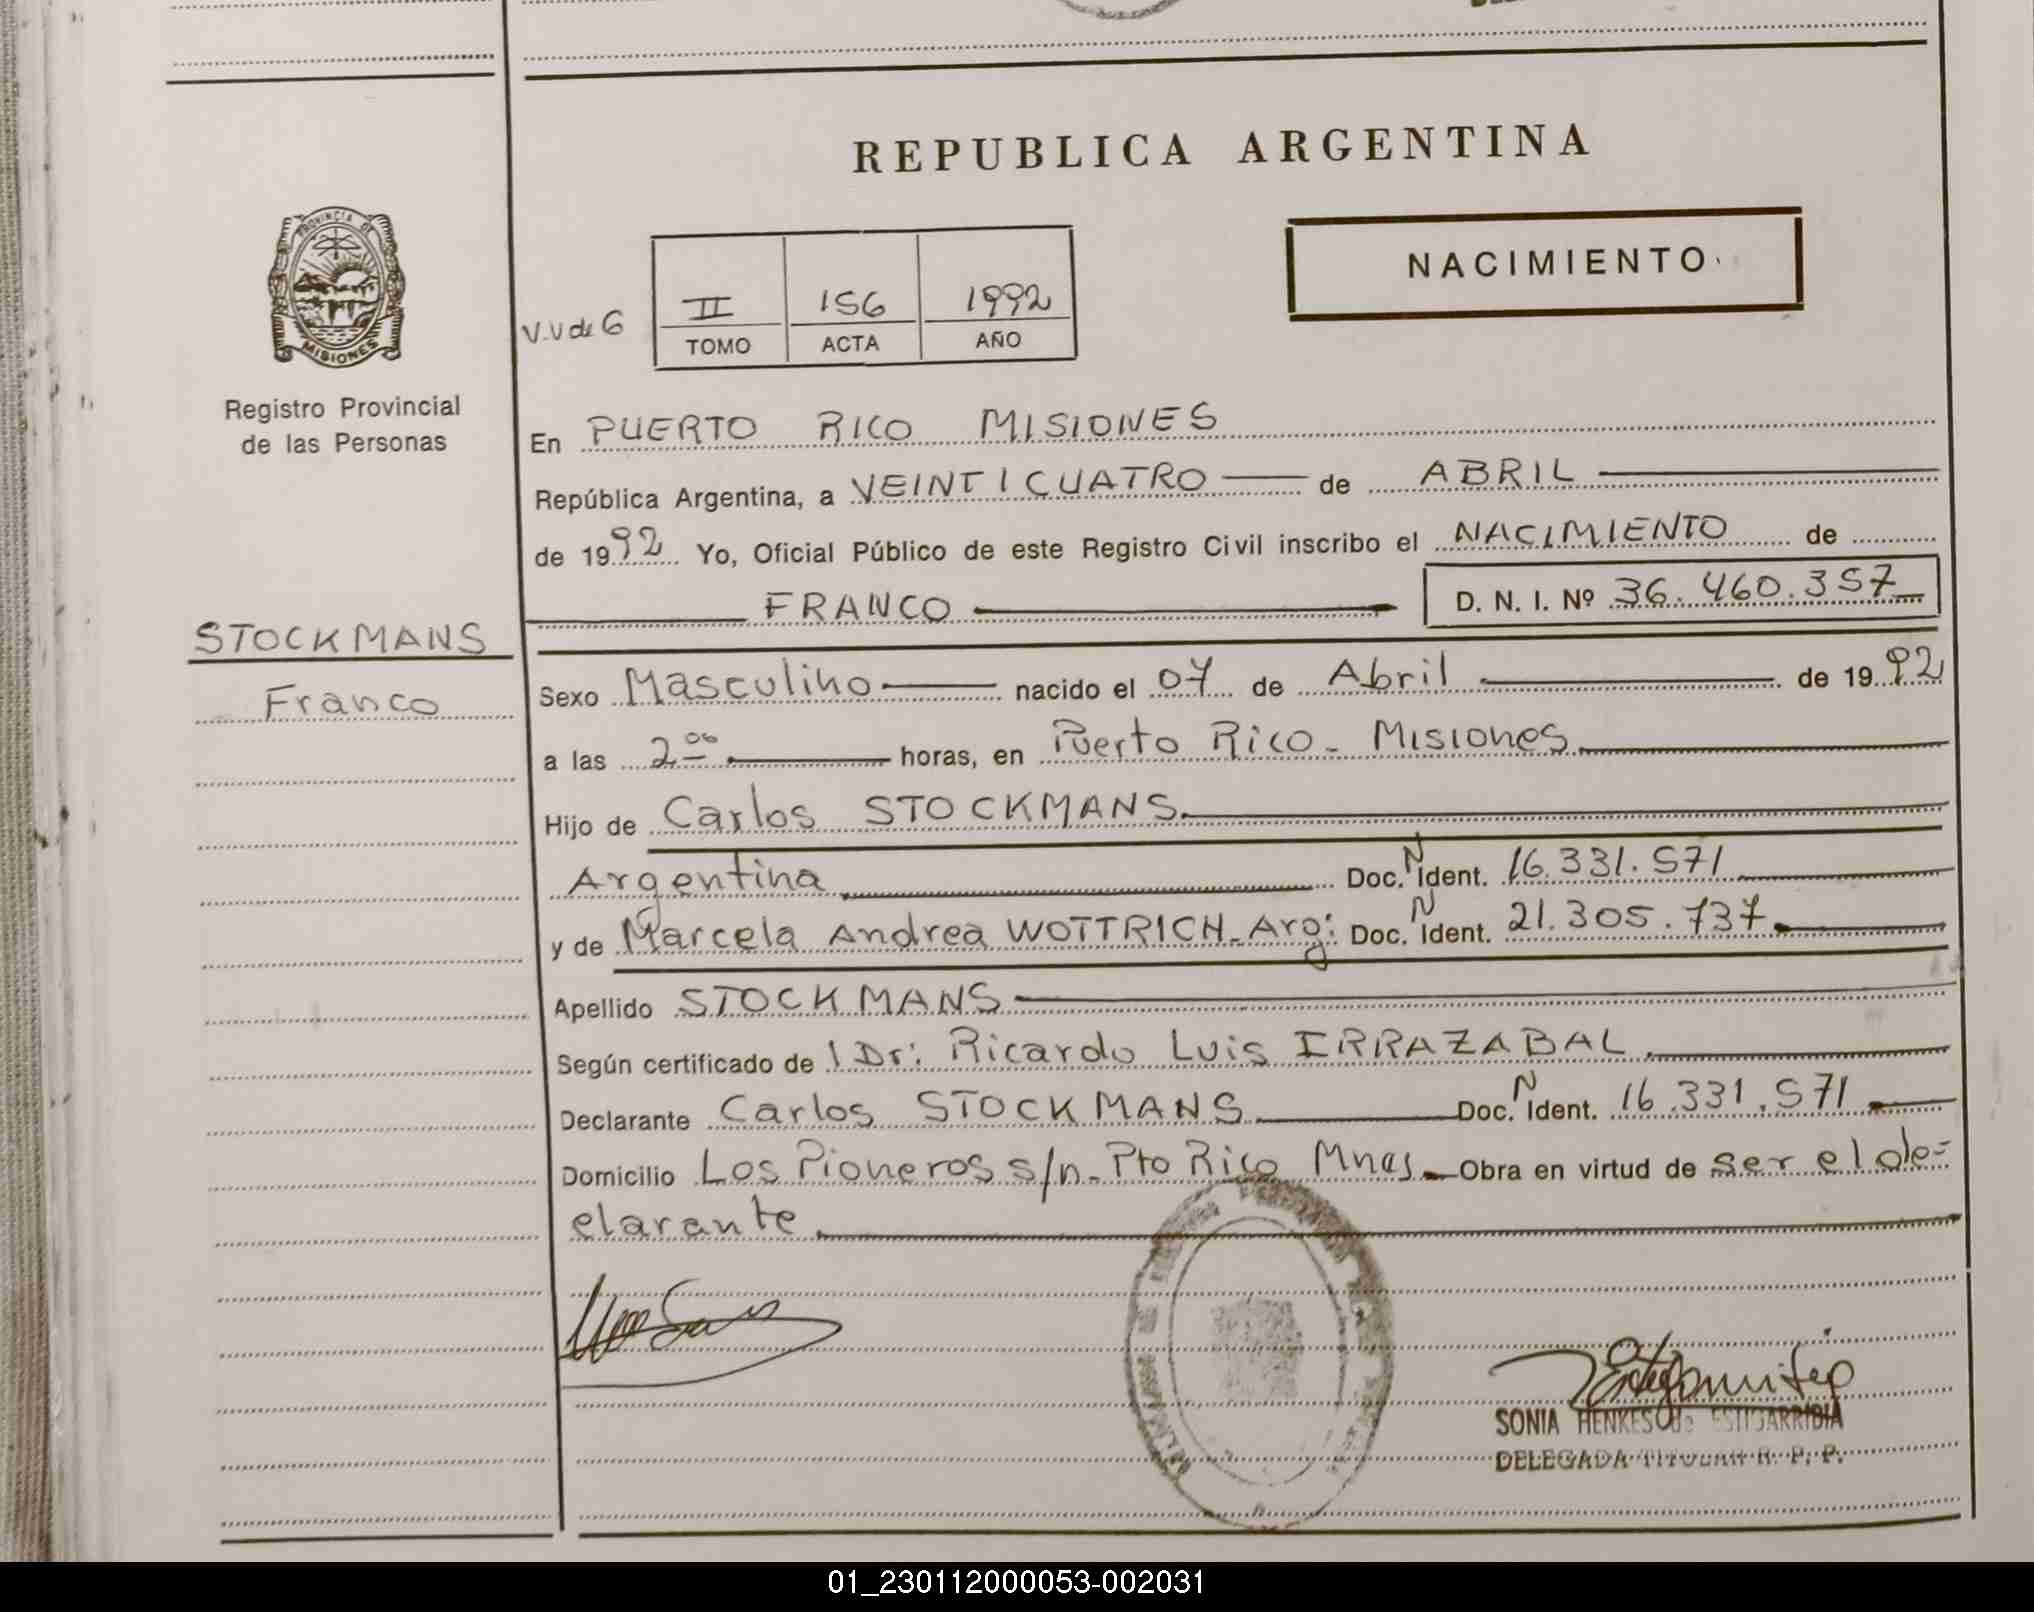 REPUBLICA ARGENTINA
PROVINCIA DE
MISIONES
Registro Provincial
de las Personas
NACIMIENTO
V.V de G
II 156 1992
TOMO ACTA AÑO
En PUERTO RICO MISIONES
República Argentina, a VEINTICUATRO de ABRIL
de 1992 Yo, Oficial Público de este Registro Civil inscribo el NACIMIENTO de
FRANCO D. N. I. Nº 36.460.357
STOCKMANS
Franco
Sexo Masculino nacido el 07 de Abril de 1992
a las 2 00 horas, en Puerto Rico - Misiones
Hijo de Carlos STOCKMANS
Argentina Doc. N Ident. 16.331.571
y de Marcela Andrea WOTTRICH - Arg: Doc. N Ident. 21.305.737
Apellido STOCKMANS
Según certificado de l Dr: Ricardo Luis IRRAZABAL
Declarante Carlos STOCKMANS Doc. N Ident. 16.331.571
Domicilio Los Pioneros s/n - Pto Rico Mnes Obra en virtud de ser el de=
clarante
SONIA HENKES de ESTIGARRIBIA
DELEGADA TITULAR R. P. P.
01_230112000053-002031